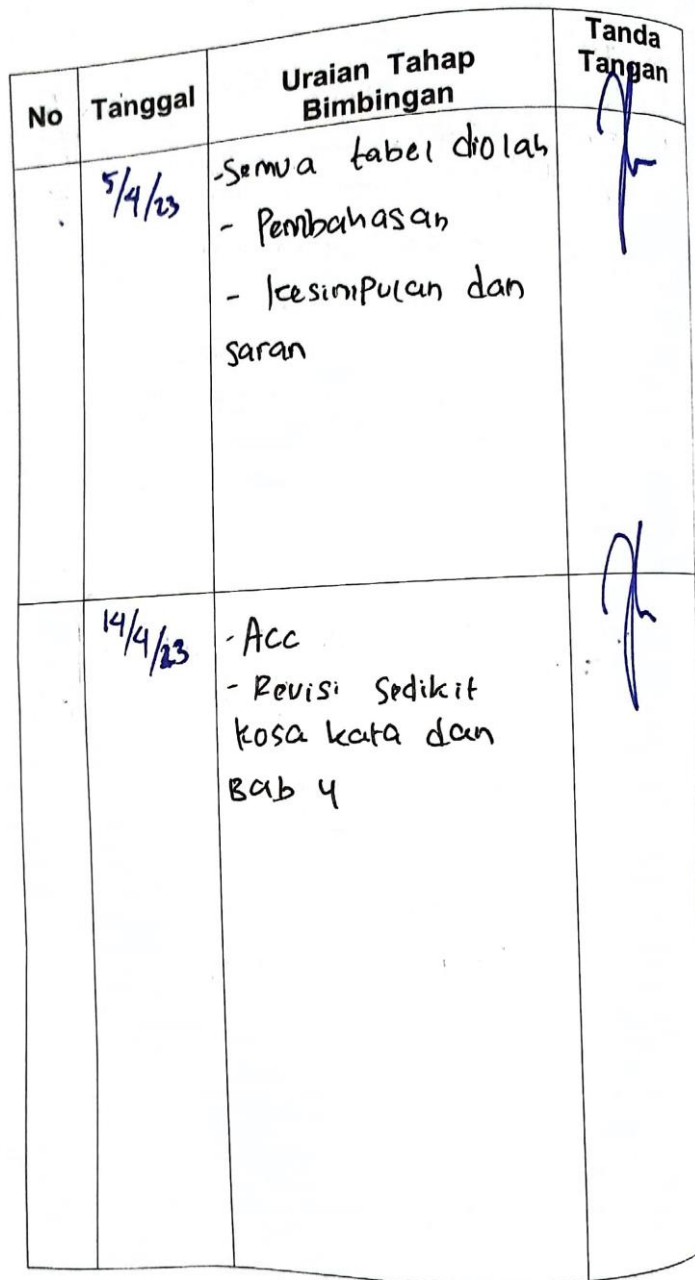 No Tanggal Uraian Tahap Bimbingan Tanda Tangan
5/4/23
-Semua tabel diolah
- Pembahasan
- kesimpulan dan
saran
14/4/23
- Acc
- Revisi Sedikit
kosa kata dan
Bab 4